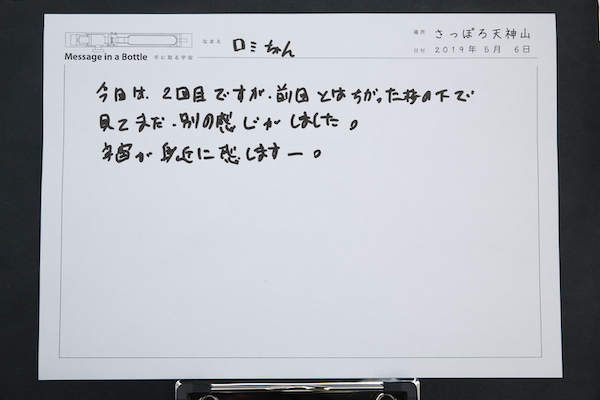 なまえ ロミちゃん
場所 さっぽろ天神山
日付 2019年5月 6日
Message in a Bottle 手に取る宇宙
今日は、2回目ですが、前回とはちがった桜の下で
見てまた、別の感じがしました。
宇宙が身近に感じますー。